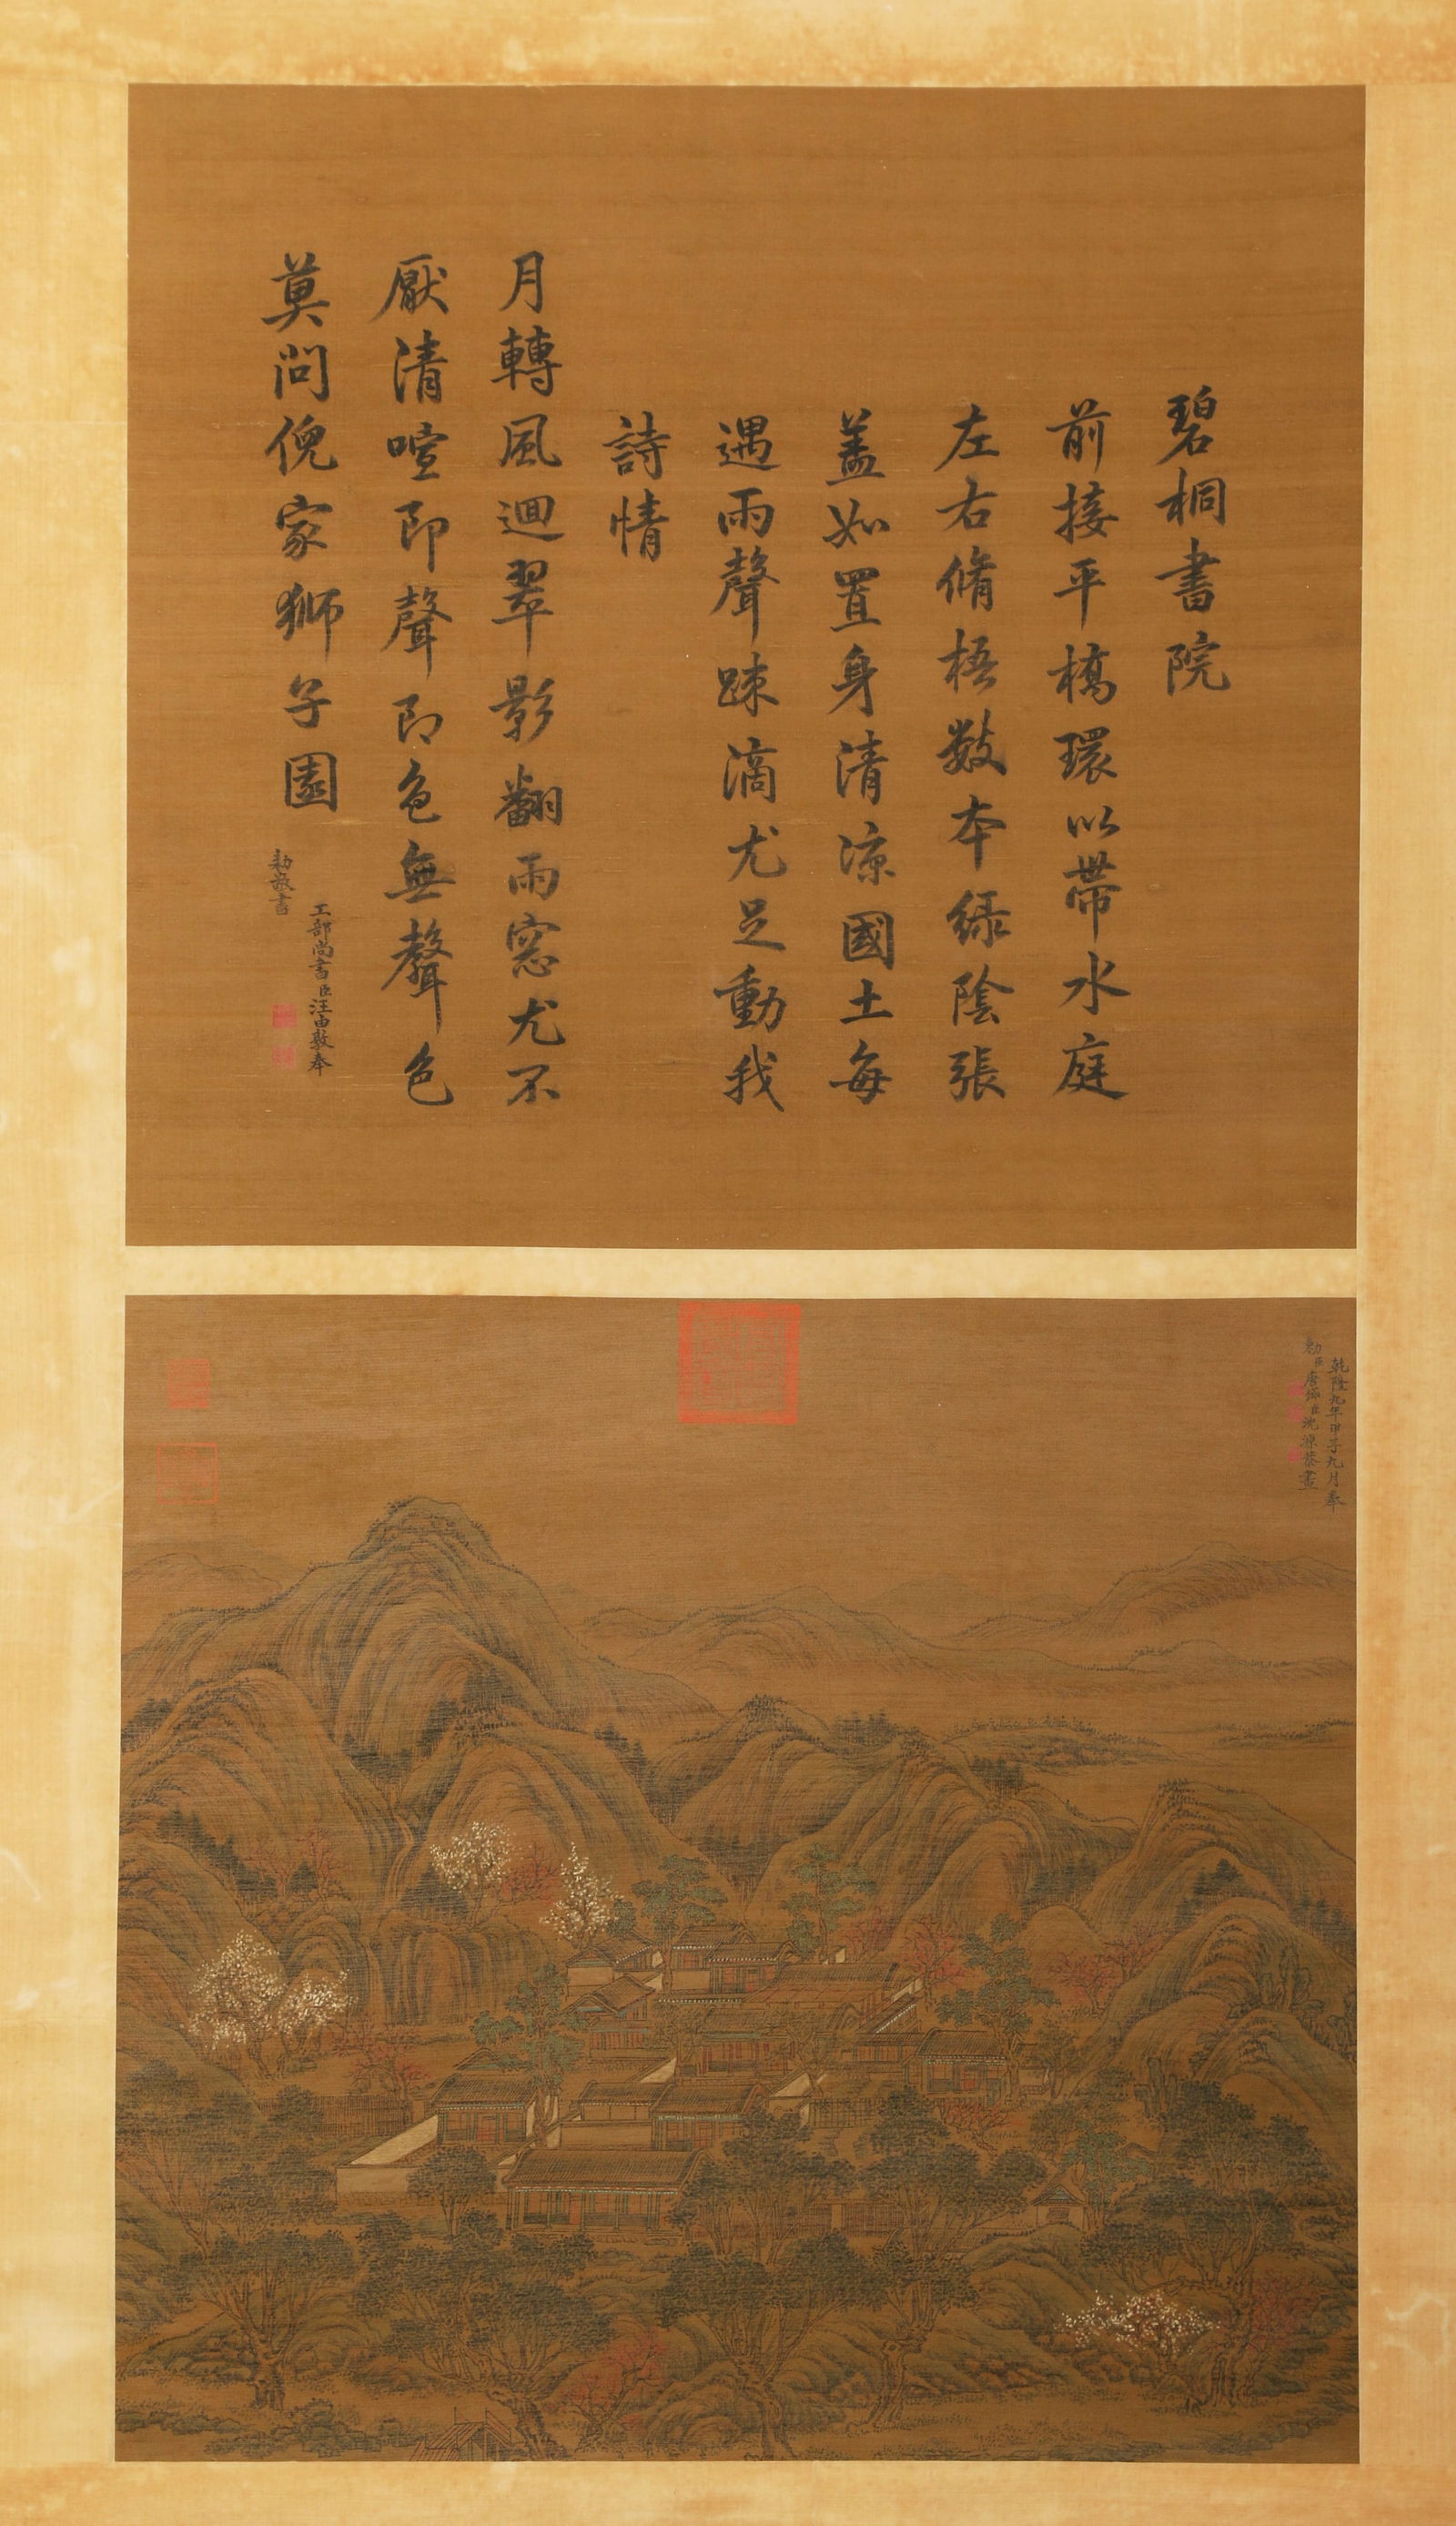 碧桐書院
前接平橋環以帶水庭
左右脩梧數本綠陰張
蓋如置身清涼國土每
遇雨聲踈滴尤足動我
詩情
月轉風迴翠影翻雨窓尤不
厭清喧即聲即色無聲色
莫問倪家獅子園
工部尚書臣汪由敦奉
勅敬書
乾隆九年甲子九月奉
勅臣唐岱臣沈源恭畫